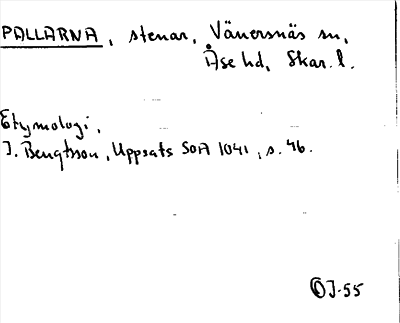 PALLARNA, stenar, Vänersnäs sn,
Åse hd, Skar. l.
Etymologi,
J. Bengtsson, Uppsats SOA 1041, s. 46.
ÖJ-55